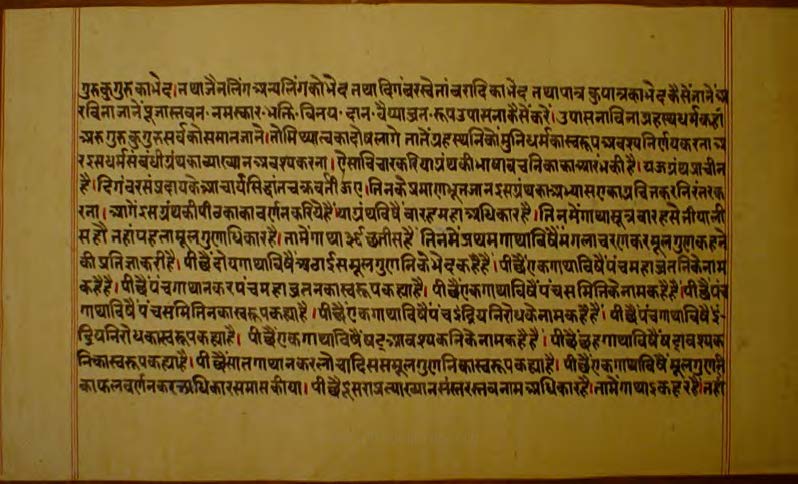 गुरुकुगुरुकाभेद। तथाजैनलिंगअन्यलिंगकोभेद तथादिगंबरस्वेतांबरादिकाभेद तथापात्र कुपात्रकाभेदकैसेंजानेंअ
रविनाजानेंपूजास्तवन॰नमस्कार॰भक्ति॰विनय॰दान॰वैय्याव्रत॰रूपउपासनाकैसेंकरें। उपासनाविनाग्रहस्थधर्मकहां
अरुगुरुकुगुरुसर्वकोसमानजानें। तोमिथ्यात्वकादोषलागे तातेंग्रहस्थनिकोंमुनिधर्मकास्वरूपअवश्यनिर्णयकरनाअ
रइसधर्मसंबंधीग्रंथकाव्याख्यानअवश्यकरना। ऐसाविचारकरियाग्रंथकीभाषावचनिकाकाप्रारंभकीहै। यऊग्रंथप्राचीन
है। दिगंबरसंप्रदायकेआचार्यसिद्धांतचक्रवर्तीऊए। तिनकेप्रमाणभूतजानइसग्रंथकाअभ्यासएकाग्रचित्तकरनिरंतरक
रना। आगेंइसग्रंथकीपीठकाकावर्णनकरियेहै। याग्रंथविषेंबारहमहाअधिकारहै। तिनमेंगाथासूत्रबारहसेतीयाली
सहै तहांपहलामूलगुणाधिकारहै। तामेंगाथा छत्तीसहै तिनमेंप्रथमगाथाविषेंमंगलाचरणकरमूलगुणकहने
कीप्रतिज्ञाकरीहै। पीछैंदोयगाथाविषैंअठाईसमूलगुणनिकेभेदकहैहै। पीछैंएकगाथाविषैंपंचमहाव्रतनिकेनाम
कहैहै। पीछैंपंचगाथानकरपंचमहाव्रतनकास्वरूपकह्याहै। पीछैंएकगाथाविषैंपंचसमितिकेनामकहैहै। पीछैंपंच
गाथाविषैंपंचसमितिनकास्वरूपकह्याहै। पीछैंएकगाथाविषैंपंचइंद्रियनिरोधकेनामकहैहै। पीछैंपंचगाथाविषैंइं॰
द्रियनिरोधकास्वरूपकह्याहै। पीछैंएकगाथाविषैंषट्आवश्यकनिकेनामकहैहै। पीछैंछहगाथाविषैंषडावश्यक
निकास्वरूपकह्याहै। पीछैंसातगाथानकरलोचादिसप्तमूलगुणनिकास्वरूपकह्याहै। पीछैंएकगाथाविषैंमूलगुणनि
काफलवर्णनकरअधिकारसमाप्तकीया। पीछैंदूसराप्रत्याख्यानसंस्तरस्तवनामअधिकारहै। तामेंगाथाइकहरहै। तहां